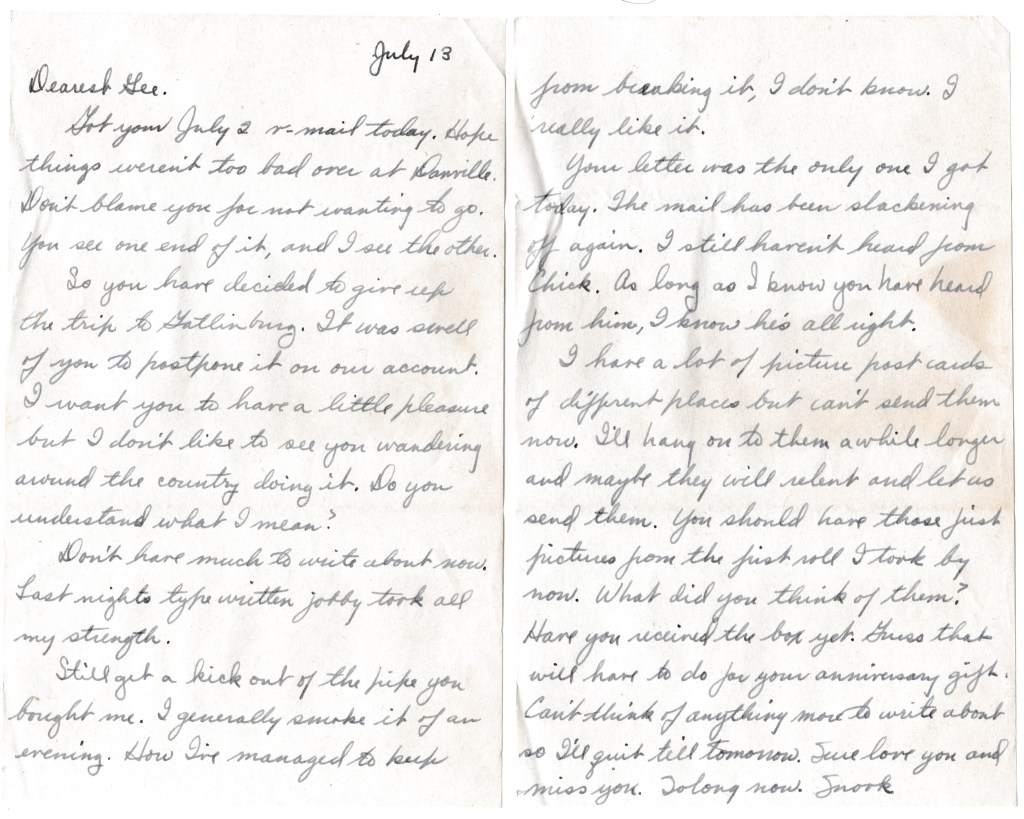 July 13
Dearest Gee.
Got your July 2 v-mail today. Hope
things weren't too bad over at Danville.
Don't blame you for not wanting to go.
You see one end of it, and I see the other.
So you have decided to give up
the trip to Gatlinburg. It was swell
of you to postpone it on our account.
I want you to have a little pleasure
but I don't like to see you wandering
around the country doing it. Do you
understand what I mean?
Don't have much to write about now.
Last nights type written jobby took all
my strength.
Still get a kick out of the pipe you
bought me. I generally smoke it of an
evening. How I've managed to keep
from breaking it, I don't know. I
really like it.
Your letter was the only one I got
today. The mail has been slackening
off again. I still haven't heard from
Chick. As long as I know you have heard
from him, I know he's all right.
I have a lot of picture post cards
of different places but can't send them
now. I'll hang on to them awhile longer
and maybe they will relent and let us
send them. You should have those first
pictures from the first roll I took by
now. What did you think of them?
Have you received the box yet. Guess that
will have to do for your anniversary gift.
Can't think of anything more to write about
so I'll quit till tomorrow. Sure love you and
miss you. So long now. Snook